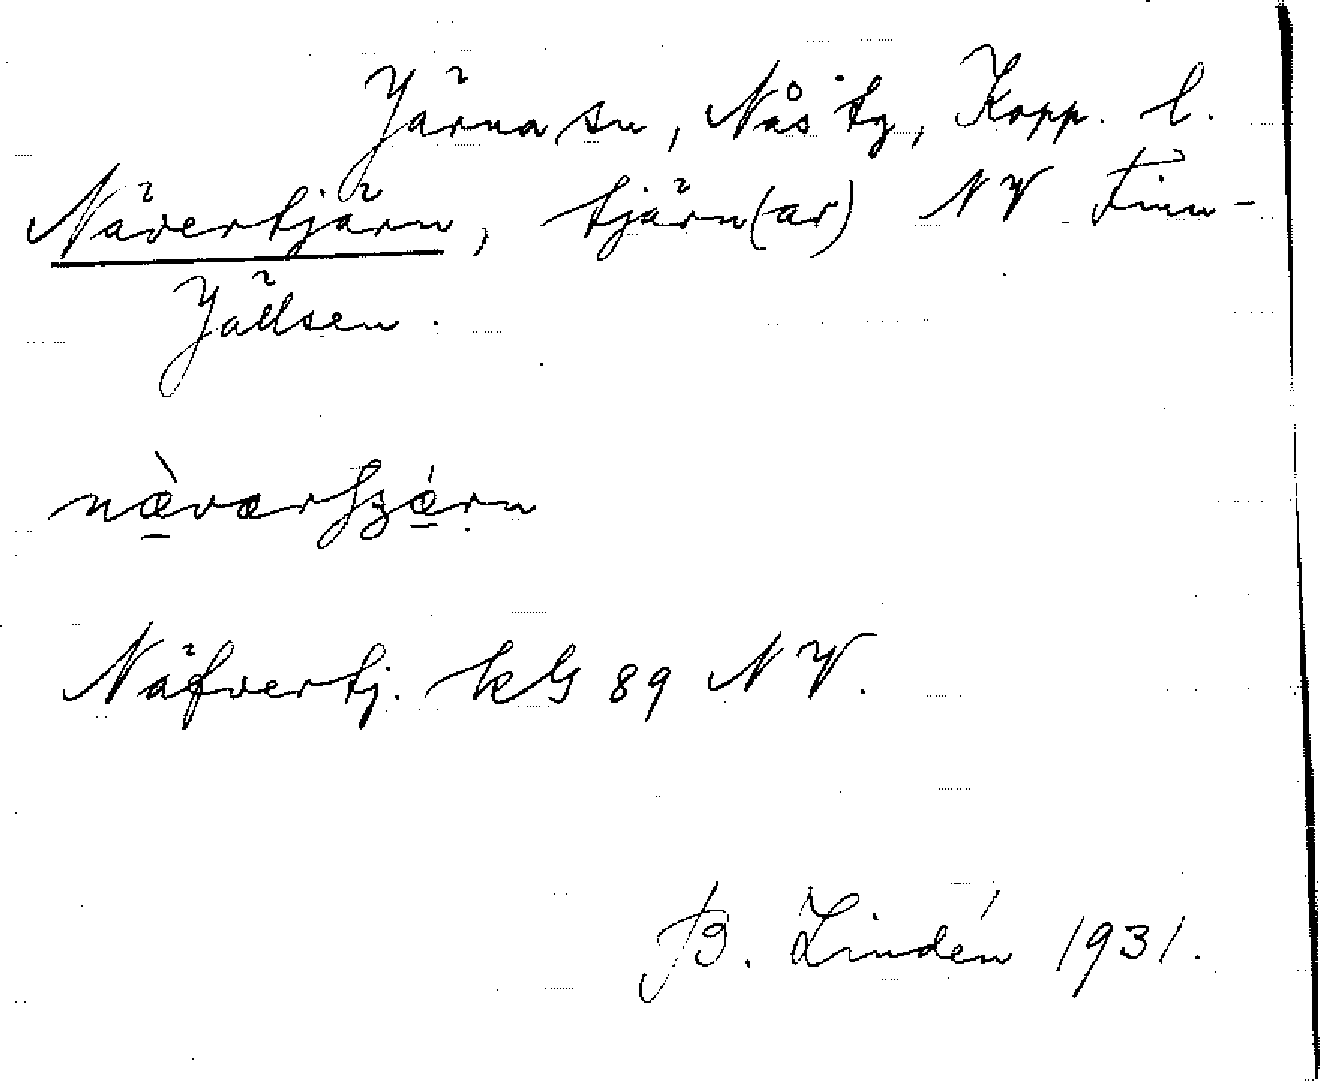 Järna sn, Nås tg, Kopp. l.
Nävertjärn, tjärn(ar) NV Finn-
Jällsen.
næ̀værʃʒǽṛn
Näfvertj. kG 89 NV.
B. Lindén 1931.